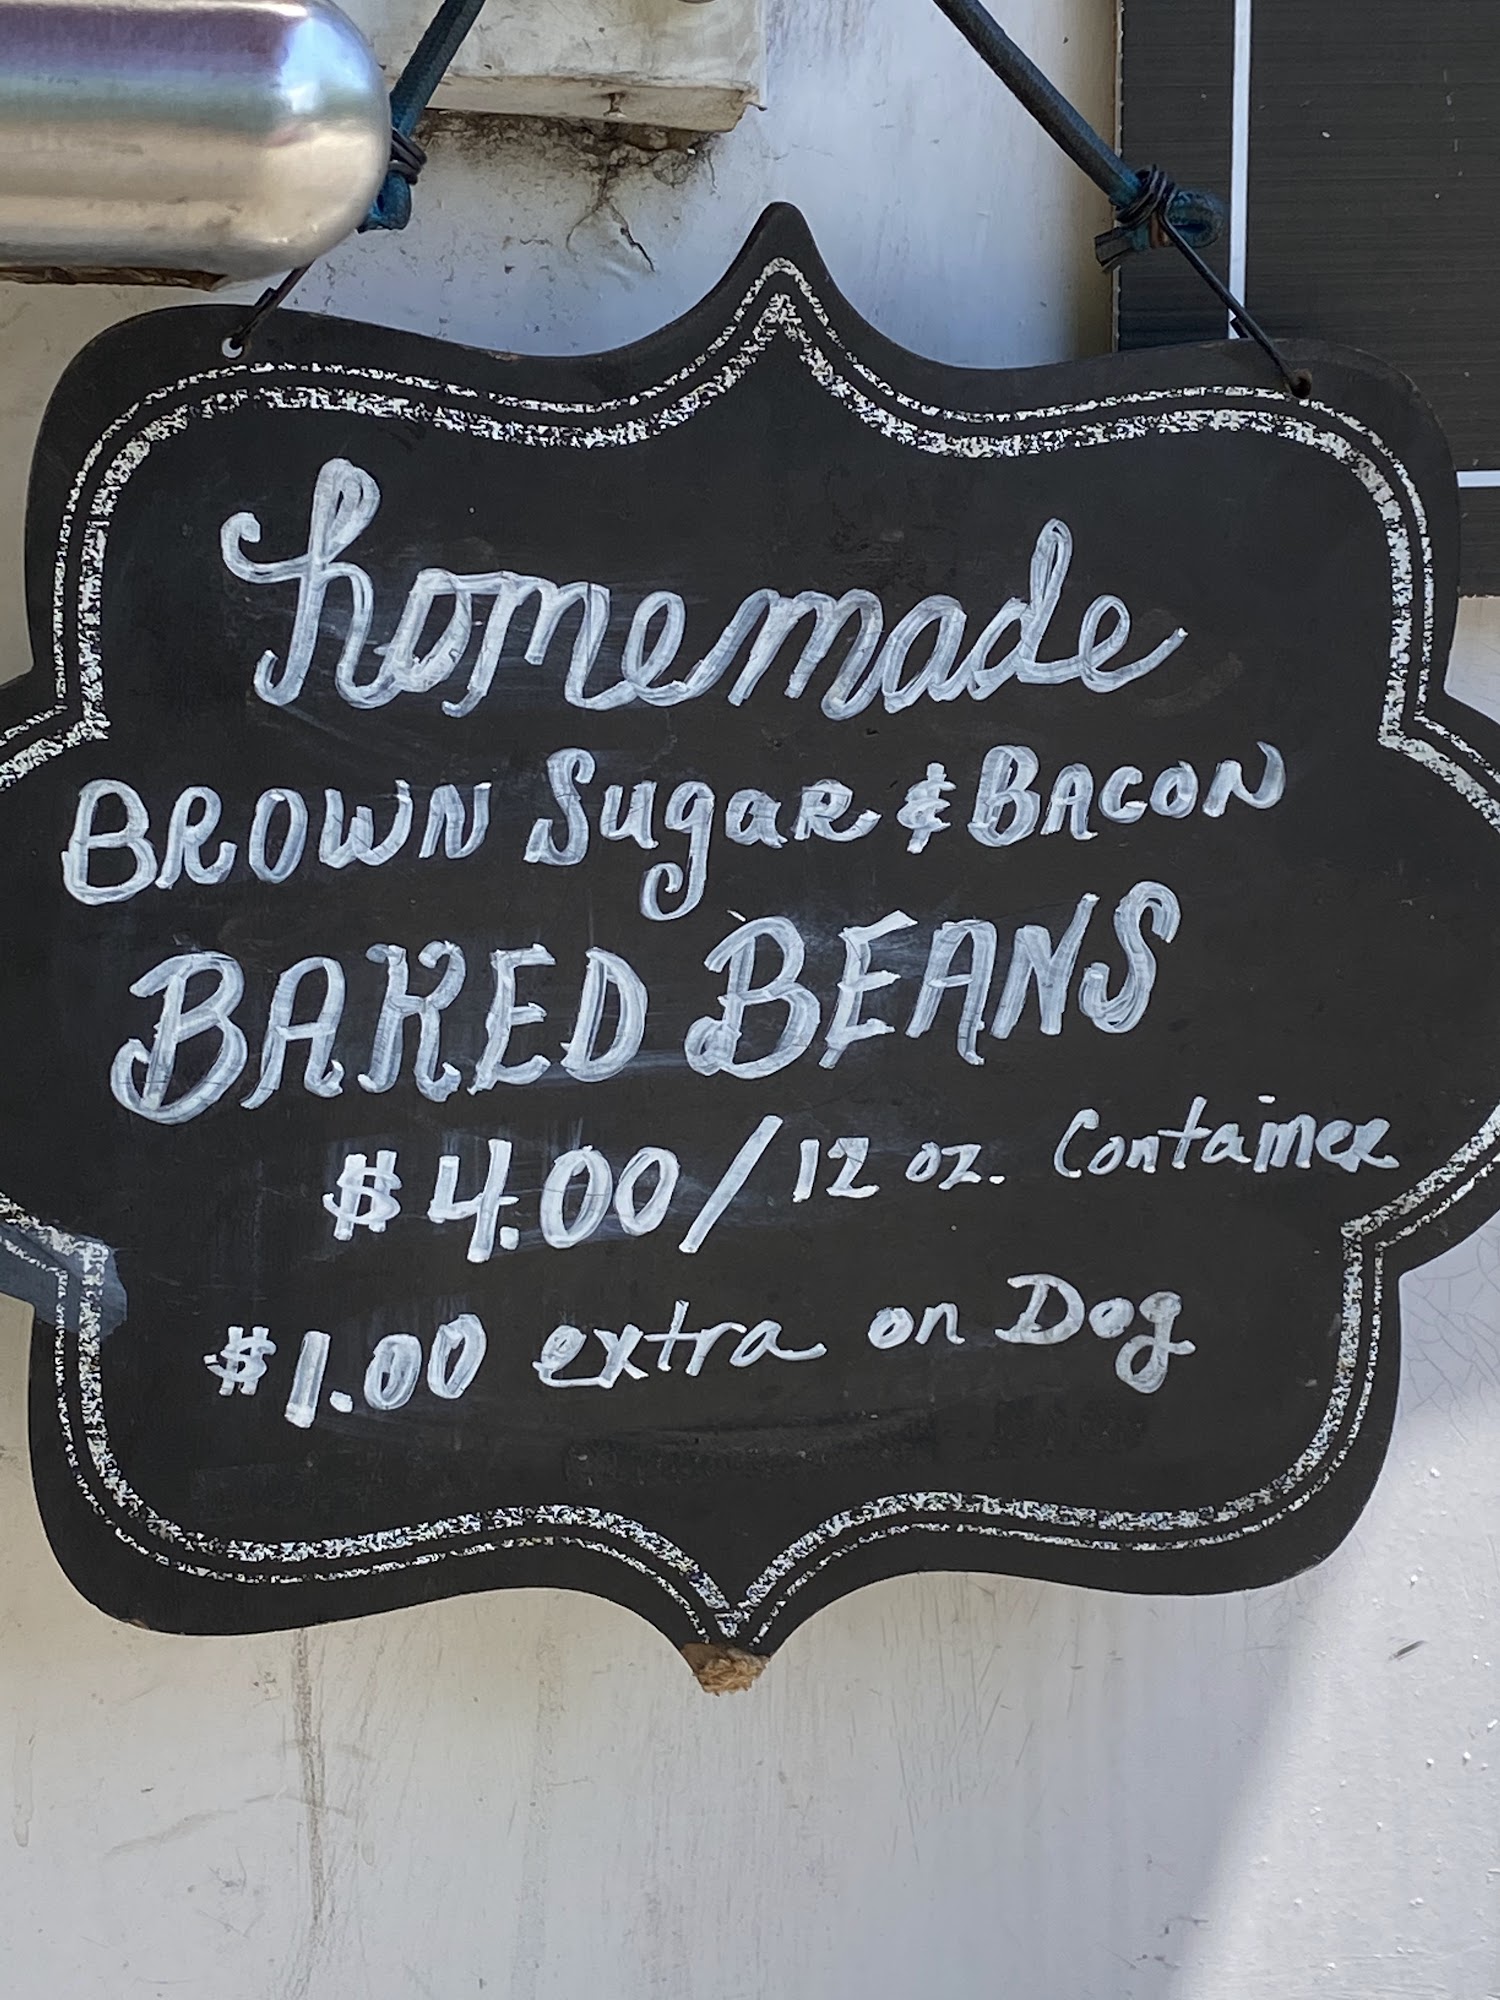 homemade
BROWN SugaR & BACON
BAKED BEANS
$4.00/12 oz. Container
$1.00 extra on Dog